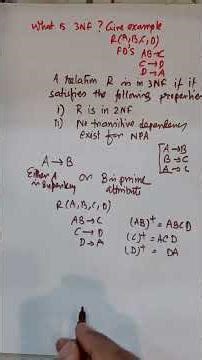 What is 3NF ? Give example
R(A,B,C,D)
FD's AB→C
C→D
D→A
A relation R is in 3NF if it
satisfies the following properties
i) R is in 2NF
ii) No transitive dependency
exist for NPA
A→B
B→C
A→C
A → B
Either A is superkey or B is prime attribute
R(A,B,C,D)
AB→C (AB)+ = ABCD
C→D (C)+ = ACD
D→A (D)+ = DA